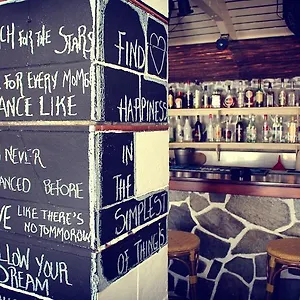 CH FOR THE STARS
FOR EVERY MOM
ANCE LIKE
NEVER
ANCED BEFORE
VE LIKE THERE'S
NO TOMMOROW
LLOW YOUR
DREAM
FIND
HAPPINESS
IN
THE
SIMPLEST
OF THINGS